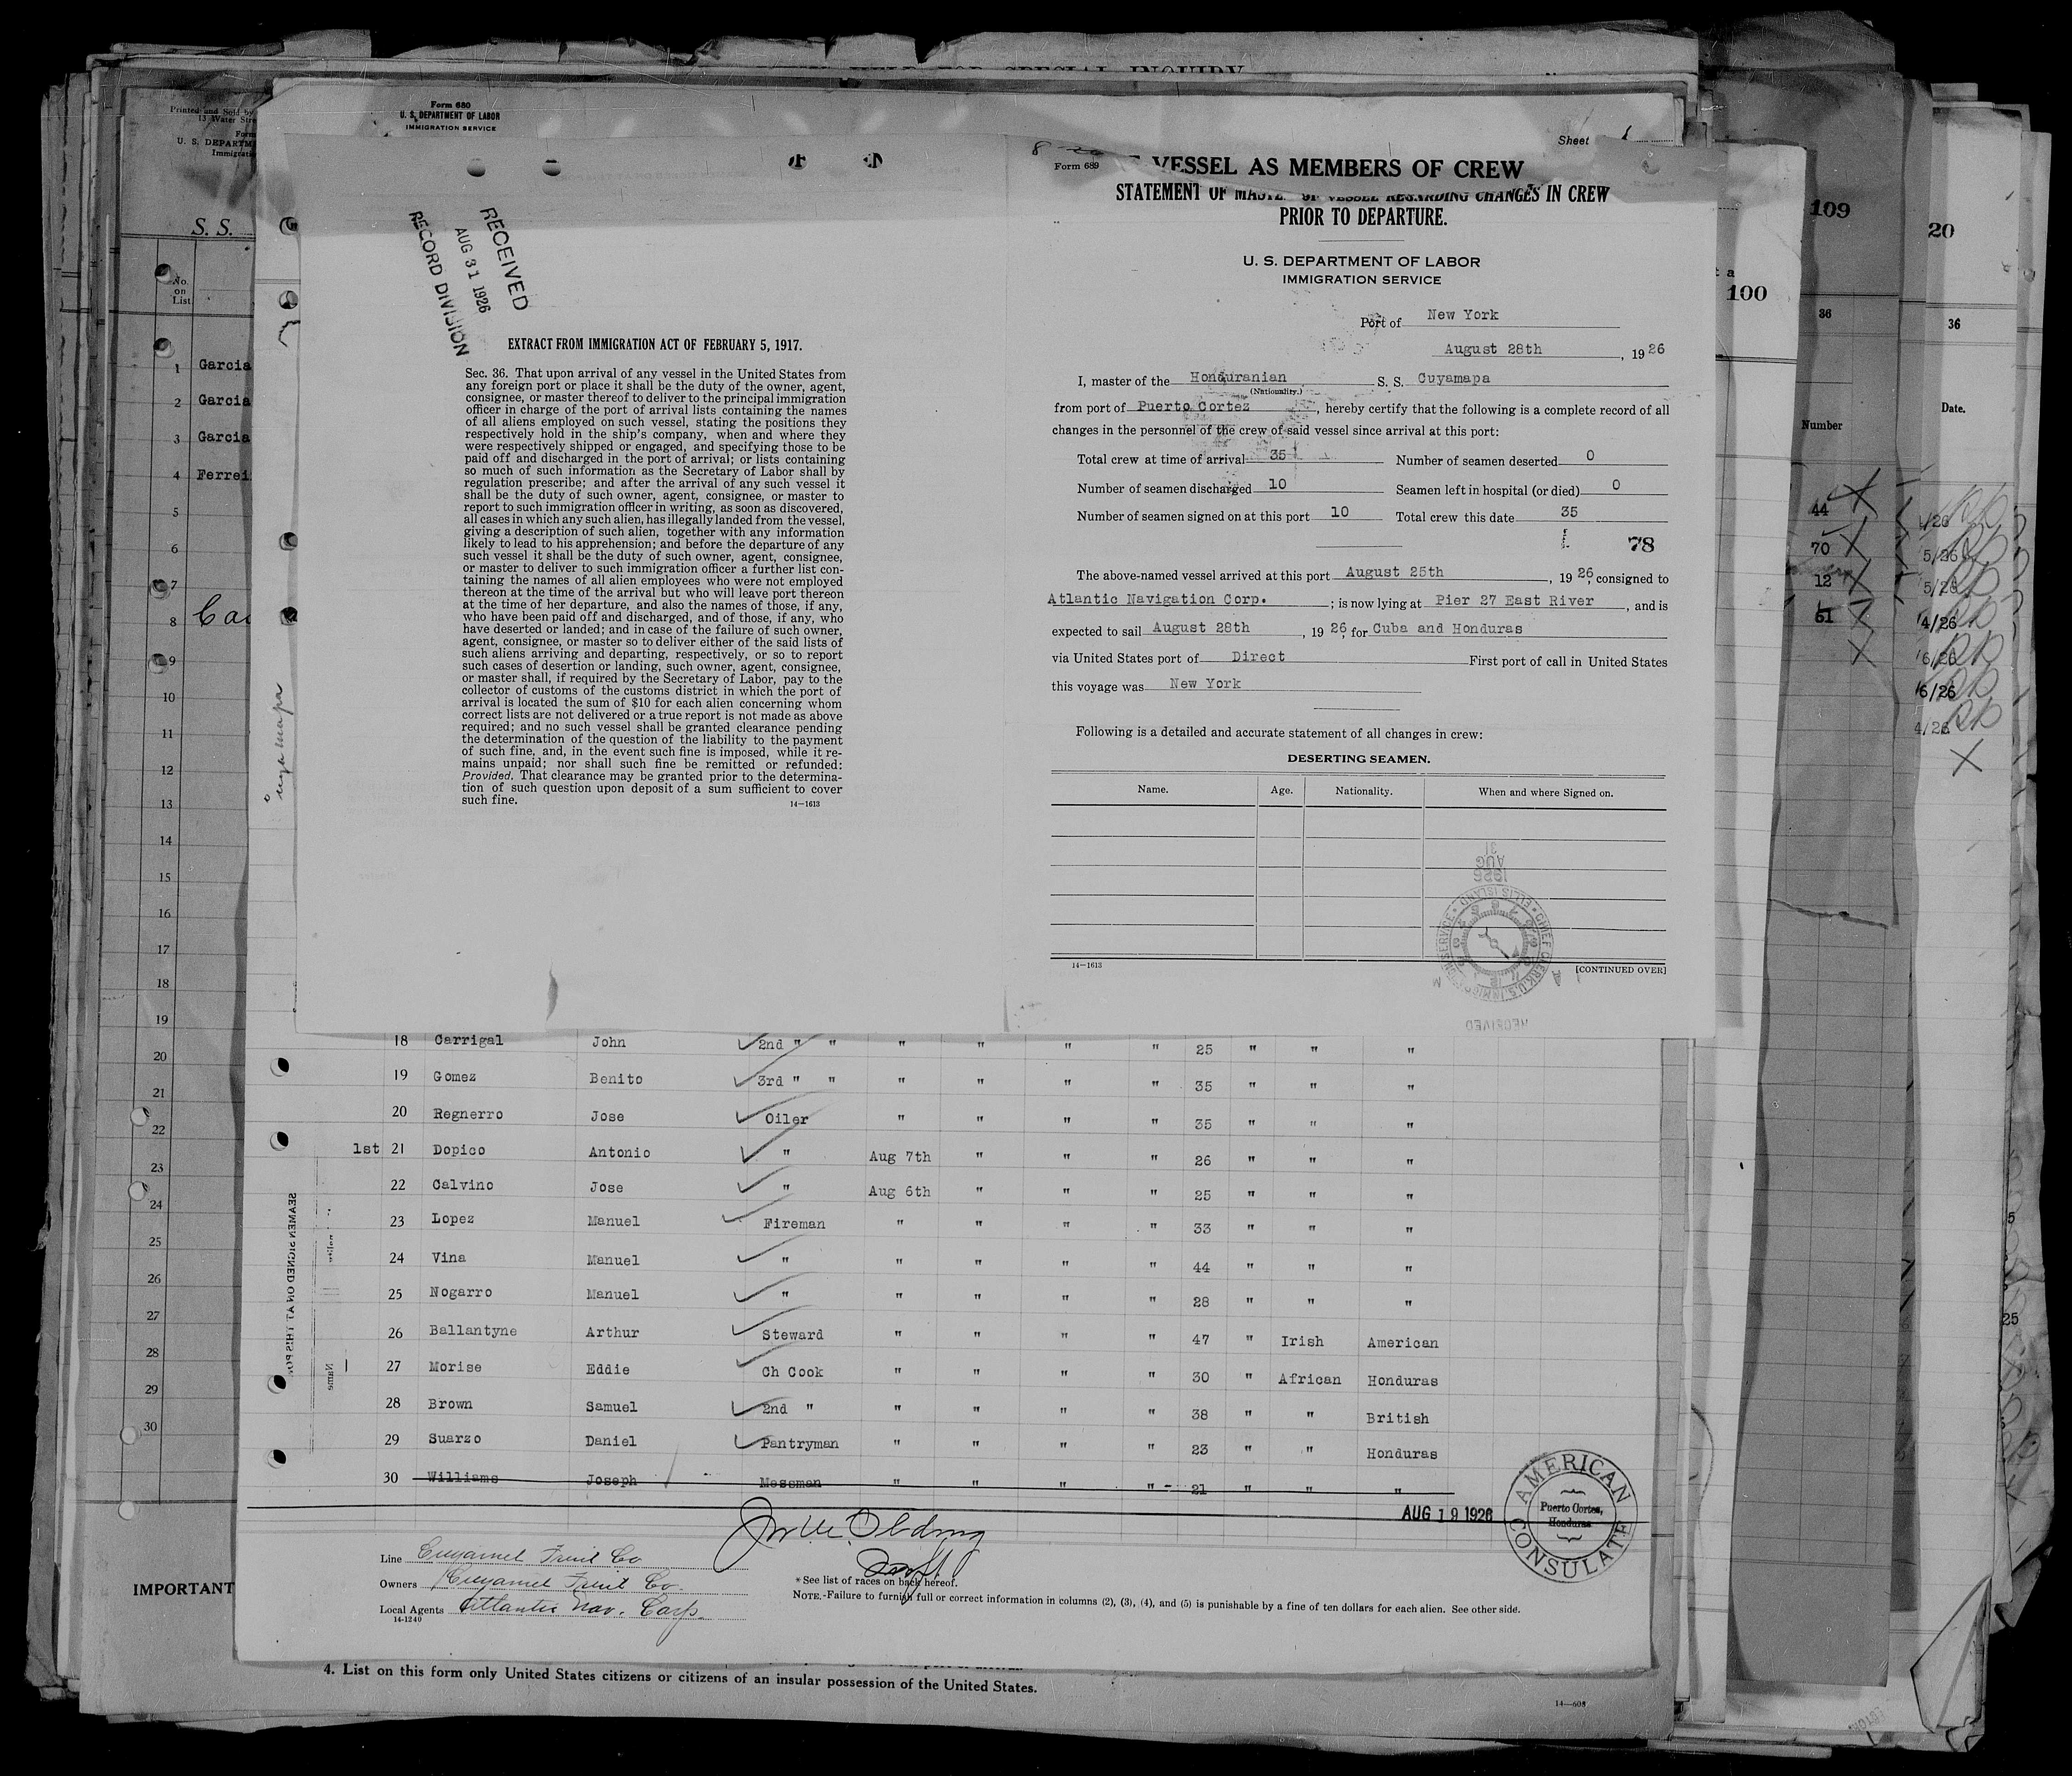 HELD FOR SPECIAL INQUIRY
Printed and Sold by
13 Water
Form
U. S. DEPARTM
Immigrati
S. S.
No.
on
List
1 Garcia
2 Garcia
3 Garcia
4 Ferrei
5
6
7
8
9
10
11
12
13
14
15
16
17
18
19
20
21
22
23
24
25
26
27
28
29
30
IMPORTANT
Form 680
U. S. DEPARTMENT OF LABOR
IMMIGRATION SERVICE
Sheet 1
VESSEL AS MEMBERS OF CREW
RECEIVED
AUG 31 1926
RECORD DIVISION
EXTRACT FROM IMMIGRATION ACT OF FEBRUARY 5, 1917.
Sec. 36. That upon arrival of any vessel in the United States from
any foreign port or place it shall be the duty of the owner, agent,
consignee, or master thereof to deliver to the principal immigration
officer in charge of the port of arrival lists containing the names
of all aliens employed on such vessel, stating the positions they
respectively hold in the ship's company, when and where they
were respectively shipped or engaged, and specifying those to be
paid off and discharged in the port of arrival; or lists containing
so much of such information as the Secretary of Labor shall by
regulation prescribe; and after the arrival of any such vessel it
shall be the duty of such owner, agent, consignee, or master to
report to such immigration officer in writing, as soon as discovered,
all cases in which any such alien, has illegally landed from the vessel,
giving a description of such alien, together with any information
likely to lead to his apprehension; and before the departure of any
such vessel it shall be the duty of such owner, agent, consignee,
or master to deliver to such immigration officer a further list con-
taining the names of all alien employees who were not employed
thereon at the time of the arrival but who will leave port thereon
at the time of her departure, and also the names of those, if any,
who have been paid off and discharged, and of those, if any, who
have deserted or landed; and in case of the failure of such owner,
agent, consignee, or master so to deliver either of the said lists of
such aliens arriving and departing, respectively, or so to report
such cases of desertion or landing, such owner, agent, consignee,
or master shall, if required by the Secretary of Labor, pay to the
collector of customs of the customs district in which the port of
arrival is located the sum of $10 for each alien concerning whom
correct lists are not delivered or a true report is not made as above
required; and no such vessel shall be granted clearance pending
the determination of the question of the liability to the payment
of such fine, and, in the event such fine is imposed, while it re-
mains unpaid; nor shall such fine be remitted or refunded:
Provided, That clearance may be granted prior to the determina-
tion of such question upon deposit of a sum sufficient to cover
such fine.
14—1613
Form 689
STATEMENT OF MASTER OF VESSEL REGARDING CHANGES IN CREW
PRIOR TO DEPARTURE.
U. S. DEPARTMENT OF LABOR
IMMIGRATION SERVICE
Port of New York
August 28th, 1926
I, master of the Honduranian S. S. Cuyamapa
(Nationality.)
from port of Puerto Cortez, hereby certify that the following is a complete record of all
changes in the personnel of the crew of said vessel since arrival at this port:
Total crew at time of arrival 35 Number of seamen deserted 0
Number of seamen discharged 10 Seamen left in hospital (or died) 0
Number of seamen signed on at this port 10 Total crew this date 35
78
The above-named vessel arrived at this port August 25th, 1926, consigned to
Atlantic Navigation Corp.; is now lying at Pier 27 East River, and is
expected to sail August 28th, 1926, for Cuba and Honduras
via United States port of Direct First port of call in United States
this voyage was New York
Following is a detailed and accurate statement of all changes in crew:
DESERTING SEAMEN.
Name. Age. Nationality. When and where Signed on.
RECEIVED
CHIEF CLERK, U.S. IMMIGRATION SERVICE ELLIS ISLAND
1926 AUG 31
14—1613
[CONTINUED OVER]
18 Carrigal John 2nd " " " " " " 25 " " "
19 Gomez Benito 3rd " " " " " " 35 " " "
20 Regnerro Jose Oiler " " " " 35 " " "
1st 21 Dopico Antonio " Aug 7th " " " 26 " " "
22 Calvino Jose " Aug 6th " " " 25 " " "
23 Lopez Manuel Fireman " " " " 33 " " "
24 Vina Manuel " " " " " 44 " " "
25 Nogarro Manuel " " " " " 28 " " "
26 Ballantyne Arthur Steward " " " " 47 " Irish American
27 Morise Eddie Ch Cook " " " " 30 " African Honduras
28 Brown Samuel 2nd " " " " " 38 " " British
29 Suarzo Daniel Pantryman " " " " 23 " " Honduras
30 Williams Joseph Messman " " " " 21 " " "
SEAMEN SIGNED ON AT THIS POR
Name
AUG 19 1926
AMERICAN CONSULATE
Puerto Cortes,
Honduras
Line Cuyamel Fruit Co
Owners Cuyamel Fruit Co.
Local Agents Atlantic Nav. Corp.
14-1240
*See list of races on back hereof.
NOTE.-Failure to furnish full or correct information in columns (2), (3), (4), and (5) is punishable by a fine of ten dollars for each alien. See other side.
4. List on this form only United States citizens or citizens of an insular possession of the United States.
14—608
109
20
100
36
36
Number
Date.
44
70
12
61
1/26
5/26
5/26
4/26
6/26
6/26
4/26
25